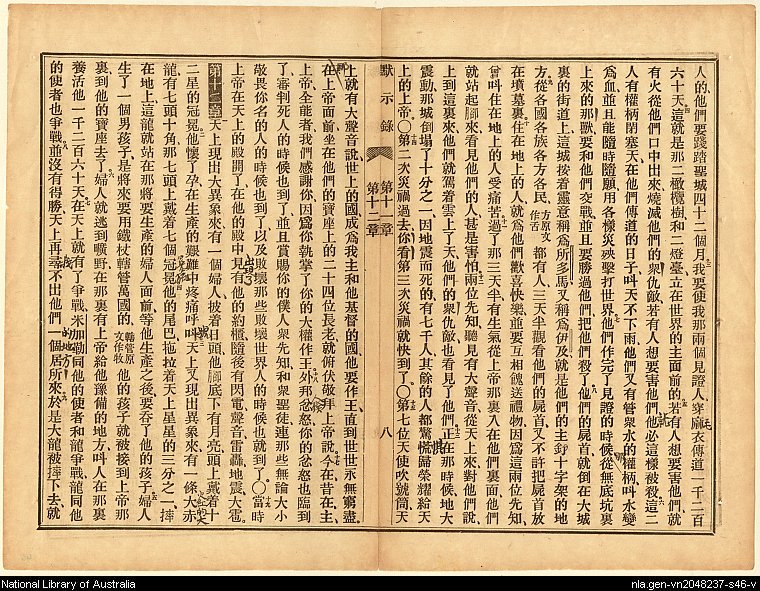 人的、他們要踐踏聖城四十二個月、我要使我那兩個見證人穿麻衣傳道一千二百
六十天、這就是那二橄欖樹和二燈臺立在世界的主面前的、若有人想要害他們就
有火從他們口中出來燒滅他們的衆仇敵、若有人想要害他們他必這樣被殺、這二
人有權柄閉塞天在他們傳道的日子叫天不下雨、他們又有管衆水的權柄叫水變
爲血並且能隨時隨願用各樣災殃擊打世界、他們作完了見證的時候從無底坑裏
上來的那獸要和他們交戰並且要勝過他們把他們殺了、他們的屍首就倒在大城
裏的街道上、這城按着靈意稱爲所多馬又稱爲伊及就是他們的主釘十字架的地
方、從各國各族各方各民方原文作舌都有人三天半觀看他們的屍首又不許把屍首放
在墳墓裏、住在地上的人就爲他們歡喜快樂並要互相餽送禮物因爲這兩位先知、
曾叫住在地上的人受痛苦、過了那三天半有生氣從上帝那裏入在他們裏面他們
就站起腳來看見他們的人甚是害怕、兩位先知聽見有大聲音從天上來對他們說
上到這裏來他們就駕着雲上了天、他們的衆仇敵也看見了他們、正在那時候地大
震動那城倒塌了十分之一、因地震而死的有七千人其餘的人都驚慌歸榮耀給天
上的上帝、○第二次災禍過去你看第三次災禍就快到了、○第七位天使吹號筒天
默示錄 第十一章 第十二章 八
上就有大聲音說世上的國成爲我主和他基督的國他要作王直到世世永無窮盡、
在上帝面前坐在他們的寶座上的二十四位長老就俯伏敬拜上帝說、今在昔在主
上帝全能者我們感謝你因爲你執掌了你的大權作王、外邦忿怒你的忿怒也臨到
了、審判死人的時候也到了並且賞賜你的僕人衆先知和衆聖徒連那些無論大小
敬畏你名的人的時候也到了以及敗壞那些敗壞世界人的時候也就到了、○當時
上帝在天上的殿開了在他的殿中見有他的約櫃隨後有閃電聲音雷轟地震大雹、
第十二章 天上現出大異象來有一個婦人披着日頭他腳底下有月亮頭上戴着十
二星的冠冕、他懷了孕在生產的艱難中疼痛呼叫、天上又現出異象來有一條大赤
龍有七頭十角那七頭上戴着七個冠冕、他的尾巴拖拉着天上星星的三分之一、摔
在地上這龍就站在那將要生產的婦人面前等他生產之後要吞了他的孩子、婦人
生了一個男孩子是將來要用鐵杖轄管萬國的、轄管原文作牧他的孩子就被接到上帝那
裏到他的寶座去了、婦人就逃到曠野在那裏有上帝給他豫備的地方叫人在那裏
養活他一千二百六十天、在天上就有了爭戰米加勒同他的使者和龍爭戰龍同他
的使者也爭戰、並沒有得勝天上再尋不出他們一個居所來、於是大龍被摔下去、就
National Library of Australia
nla.gen-vn2048237-s46-v